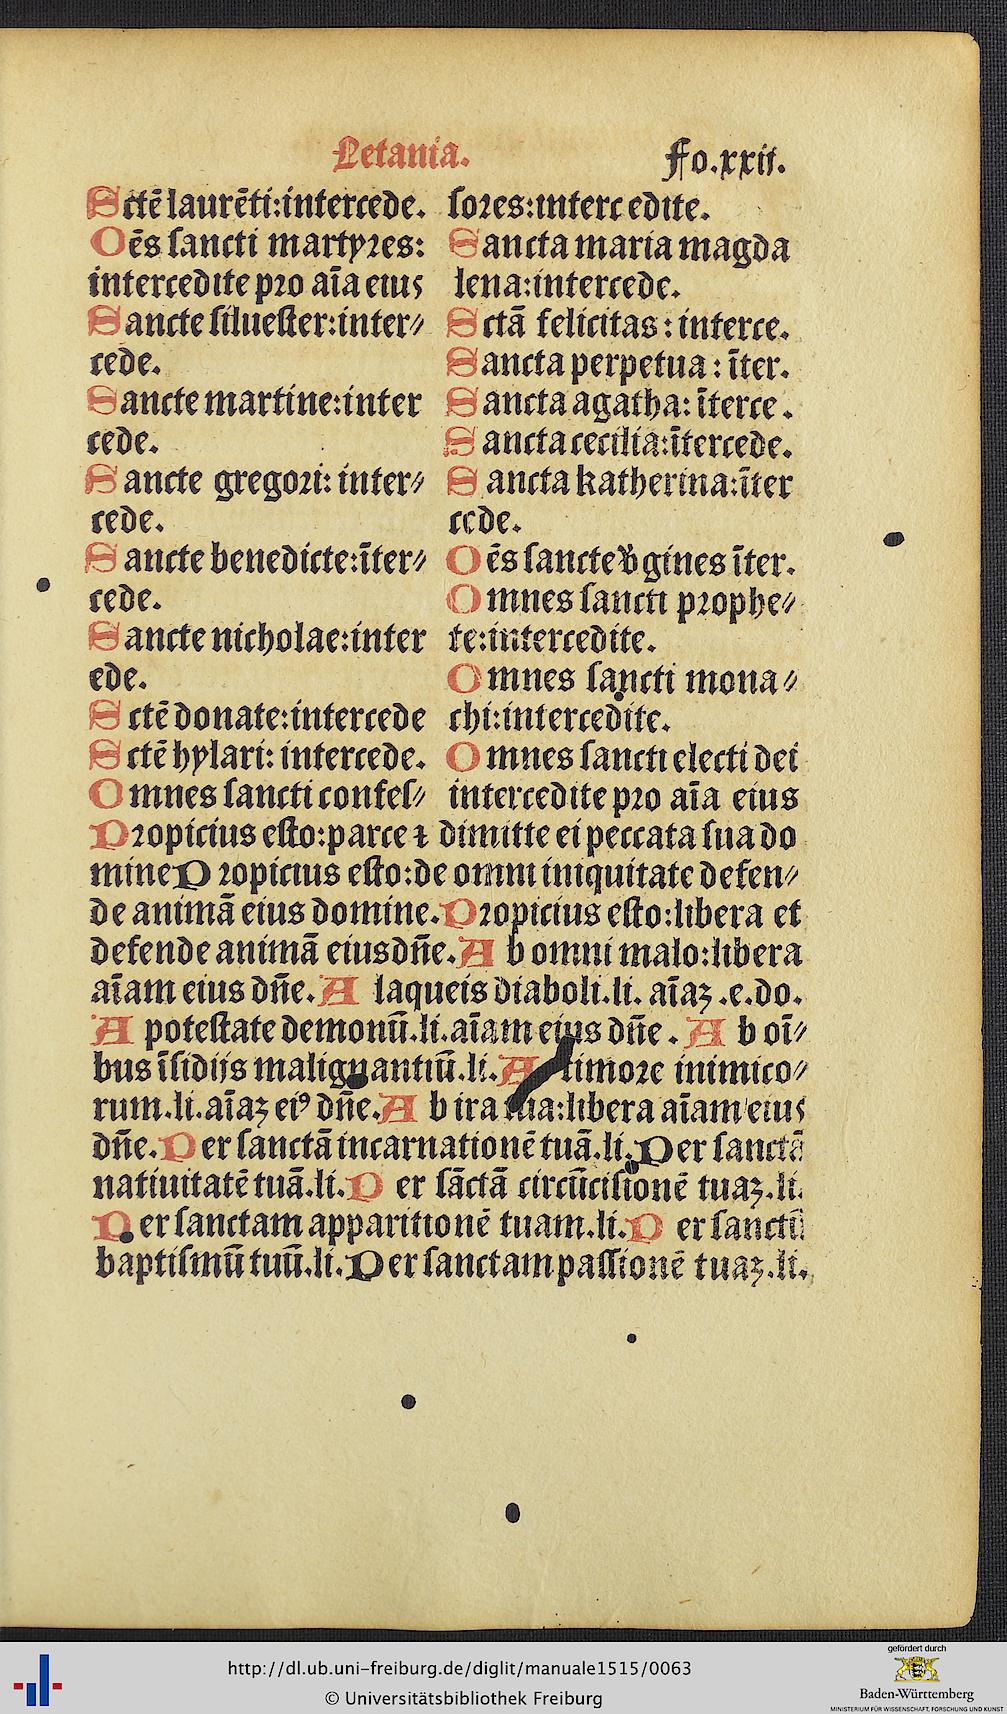 Letania.
Fo.xxij.
Sctē laurēti:intercede.
Oēs sancti martyres:
intercedite pro aīa eius
Sancte siluester:inter⸗
cede.
Sancte martine:inter
cede.
Sancte gregori: inter⸗
cede.
Sancte benedicte:īter⸗
cede.
Sancte nicholae:inter
ede.
Sctē donate:intercede
Sctē hylari: intercede.
Omnes sancti confes⸗
sores:intercedite.
Sancta maria magda
lena:intercede.
Sctā felicitas : interce.
Sancta perpetua : īter.
Sancta agatha: īterce.
Sancta cecilia:ītercede.
Sancta katherina:īter
cede.
Oēs sancte v̄gines īter.
Omnes sancti prophe⸗
te:intercedite.
Omnes sancti mona⸗
chi:intercedite.
Omnes sancti electi dei
intercedite pro aīa eius
Propicius esto:parce ⁊ dimitte ei peccata sua do
mine Propicius esto:de omni iniquitate defen⸗
de animā eius domine. Propicius esto:libera et
defende animā eius dn̄e. Ab omni malo:libera
aīam eius dn̄e. A laqueis diaboli.li. aīaꝫ .e.do.
A potestate demonū.li.aīam eius dn̄e . Ab oī⸗
bus īsidijs malignantiū.li. A timore inimico⸗
rum.li.aīaꝫ eiꝰ dn̄e. Ab ira tua:libera aīam eius
dn̄e. Per sanctā incarnationē tuā.li. Per sanctā
natiuitatē tuā.li. Per sāctā circūcisionē tuaꝫ.li.
Per sanctam apparitionē tuam.li. Per sanctū
baptismū tuū.li. Per sanctam passionē tuaꝫ.li.
http://dl.ub.uni-freiburg.de/diglit/manuale1515/0063
© Universitätsbibliothek Freiburg
gefördert durch
Baden-Württemberg
MINISTERIUM FÜR WISSENSCHAFT, FORSCHUNG UND KUNST